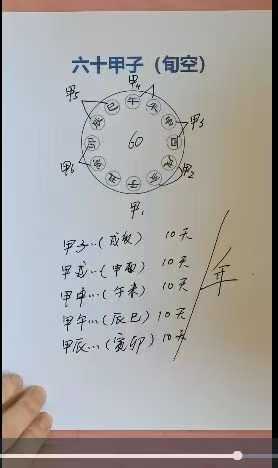 六十甲子（旬空）
甲4
甲5
午
巳
未
辰
申
60
卯
酉
甲3
甲6
寅
戌
甲2
丑
子
亥
甲1
甲子…（戌亥） 10天
甲戌…（申酉） 10天
甲申…（午未） 10天
甲午…（辰巳） 10天
甲辰…（寅卯） 10天
年